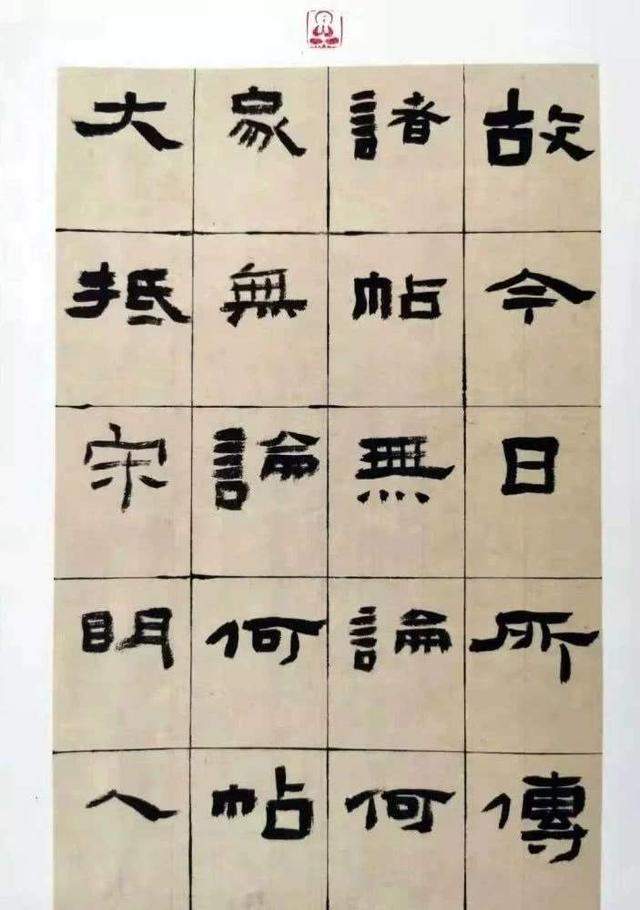 故今日所傳
諸帖無論何
家無論何帖
大抵宋明人